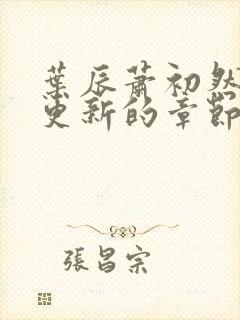 葉辰蕭初然
更新的章節
張昌宗